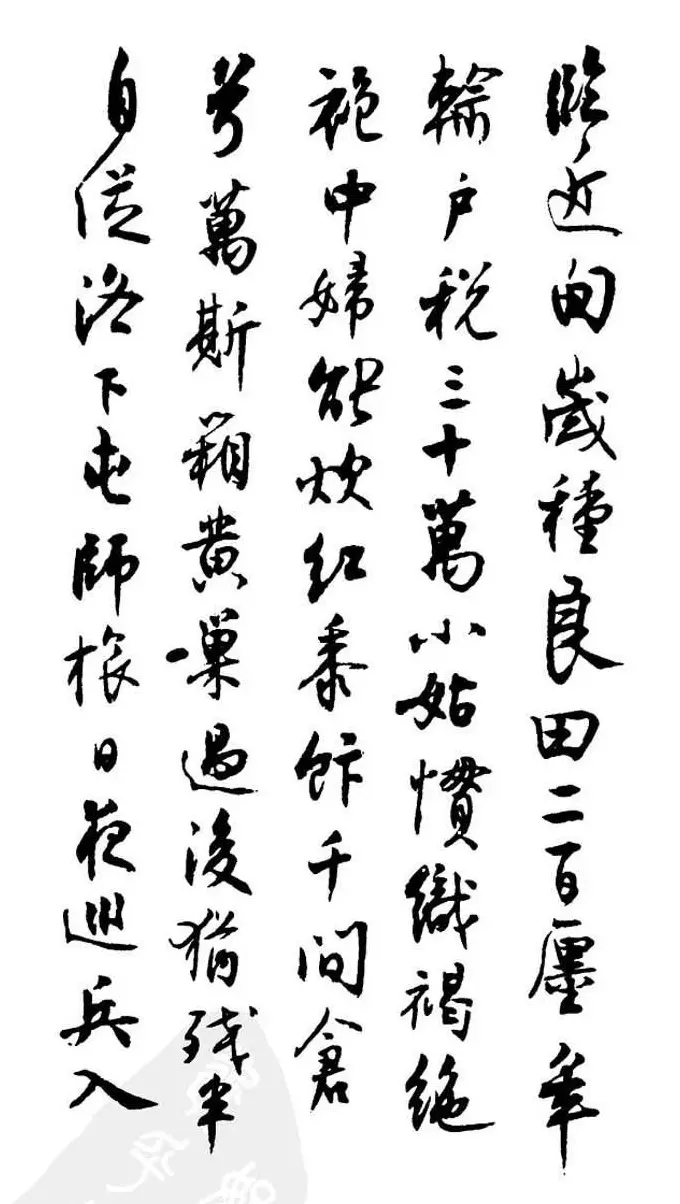 臨近甸歲種良田二百廛年
輸户税三十萬小姑慣織褐絁
袍中婦能炊红黍飰千间倉
兮萬斯箱黄巢過後猶残半
自從洛下屯師旅日夜巡兵入